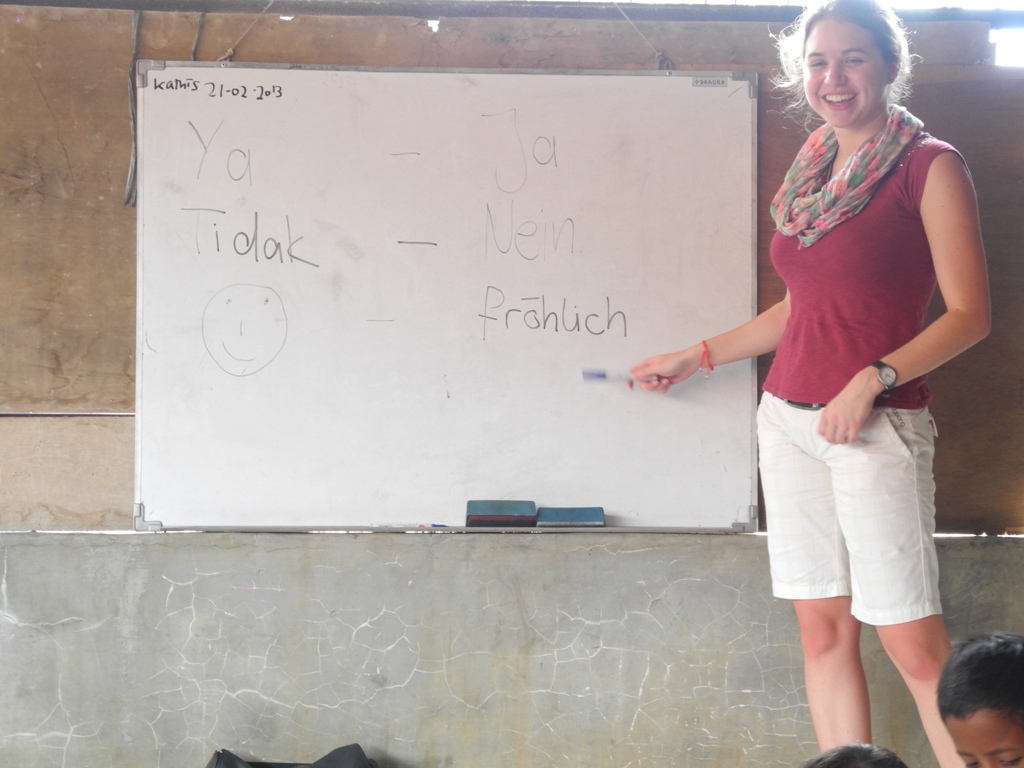 Kamis 21-02-2013
SAKURA
Ya - Ja
Tidak - Nein
- fröhlich